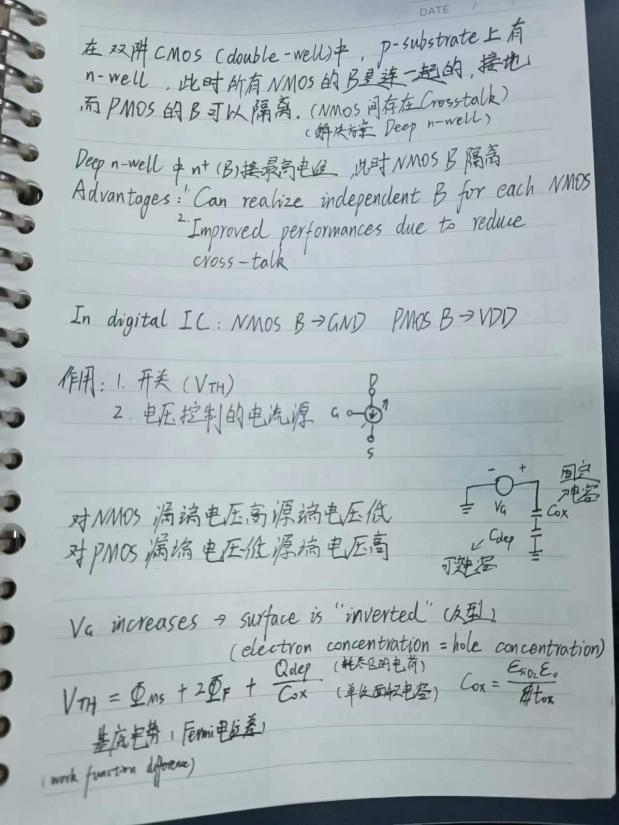 DATE
在双阱CMOS (double-well)中，p-substrate上有
n-well，此时所有NMOS的B是连一起的，接地
而PMOS的B可以隔离. (NMOS间存在Crosstalk)
(解决方案 Deep n-well)
Deep n-well 中n+(B)接最高电位 此时NMOS B隔离
Advantages: 1. Can realize independent B for each NMOS
2. Improved performances due to reduce
cross-talk
In digital IC: NMOS B→GND PMOS B→VDD
作用: 1. 开关 (VTH)
2. 电压控制的电流源
D
G
S
对NMOS 漏端电压高源端电压低
对PMOS 漏端电压低源端电压高
- +
VG
固定
电容
Cox
Cdep
可变电容
VG increases → surface is "inverted" (反型)
(electron concentration = hole concentration)
VTH = ΦMS + 2ΦF + Qdep/Cox (耗尽区的电荷) (单位面积电容) Cox = εSiO2 ε0/tox
基底电势 (Fermi电位差)
(work function difference)